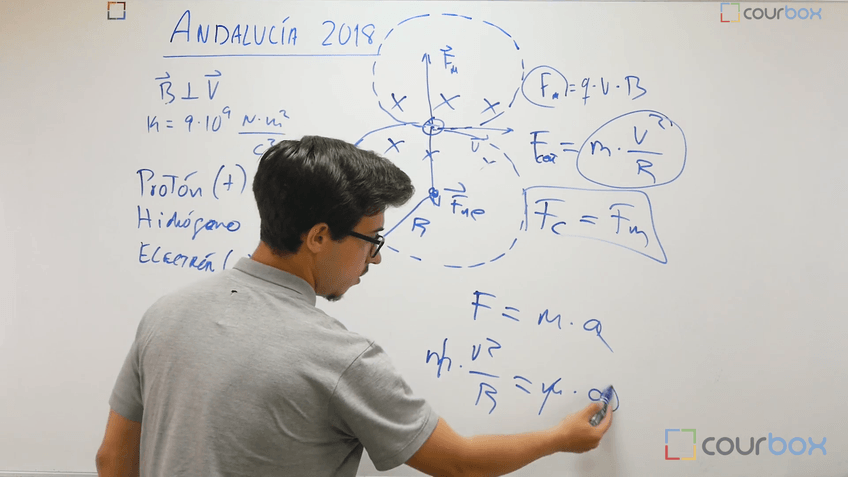 courbox
ANDALUCÍA 2018
B⃗ ⊥ V⃗
K = 9·10⁹ N·m²/C²
Protón (+)
Hidrógeno
Electrón (
F⃗m
X X X
X X
V⃗
F⃗me
R
Fm = q·V·B
m · V²/R
Fc = Fm
F = m · a
m · V²/R = m · a
courbox